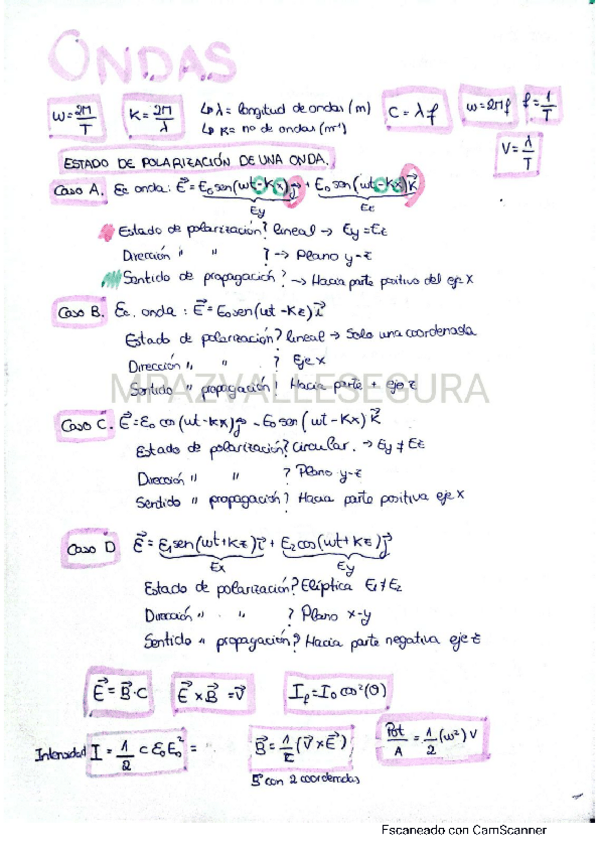 ONDAS
W=2π/T   K=2π/λ   ↳ λ= longitud de ondas (m)   C=λf   w=2πf   f=1/T
↳ K= no de ondas (m⁻¹)   V=λ/T
ESTADO DE POLARIZACIÓN DE UNA ONDA.
Caso A. Ec onda: E⃗=E₀sen(wt-Kx)j⃗ + E₀sen(wt-Kx)K⃗
Ey   Ez
Estado de polarización? lineal → Ey=Ez
Dirección " " ? → Plano y-z
Sentido de propagación? → Hacia parte positivo del eje X
Caso B. Ec. onda: E⃗=E₀sen(wt-Kz)i⃗
Estado de polarización? lineal → Solo una coordenada
Dirección " " ? Eje X
Sentido " propagación? Hacia parte + eje z
MPAZVALLESEGURA
Caso C. E⃗=E₀cos(wt-Kx)j⃗ - E₀sen(wt-Kx)K⃗
Estado de polarización? Circular. → Ey≠Ez
Dirección " " ? Plano y-z
Sentido " propagación? Hacia parte positiva eje X
Caso D E⃗=E₁sen(wt+Kz)i⃗ + E₂cos(wt+Kz)j⃗
Ex   Ey
Estado de polarización? Elíptica E₁≠E₂
Dirección " " ? Plano x-y
Sentido " propagación? Hacia parte negativa eje z
E⃗=B⃗·C   E⃗xB⃗=V⃗   If=I₀cos²(θ)
Intensidad I=1/2 c ε₀E₀² =   B⃗=1/c²(V⃗xE⃗)   Pot/A=1/2(w²)V
con 2 coordenadas
Escaneado con CamScanner